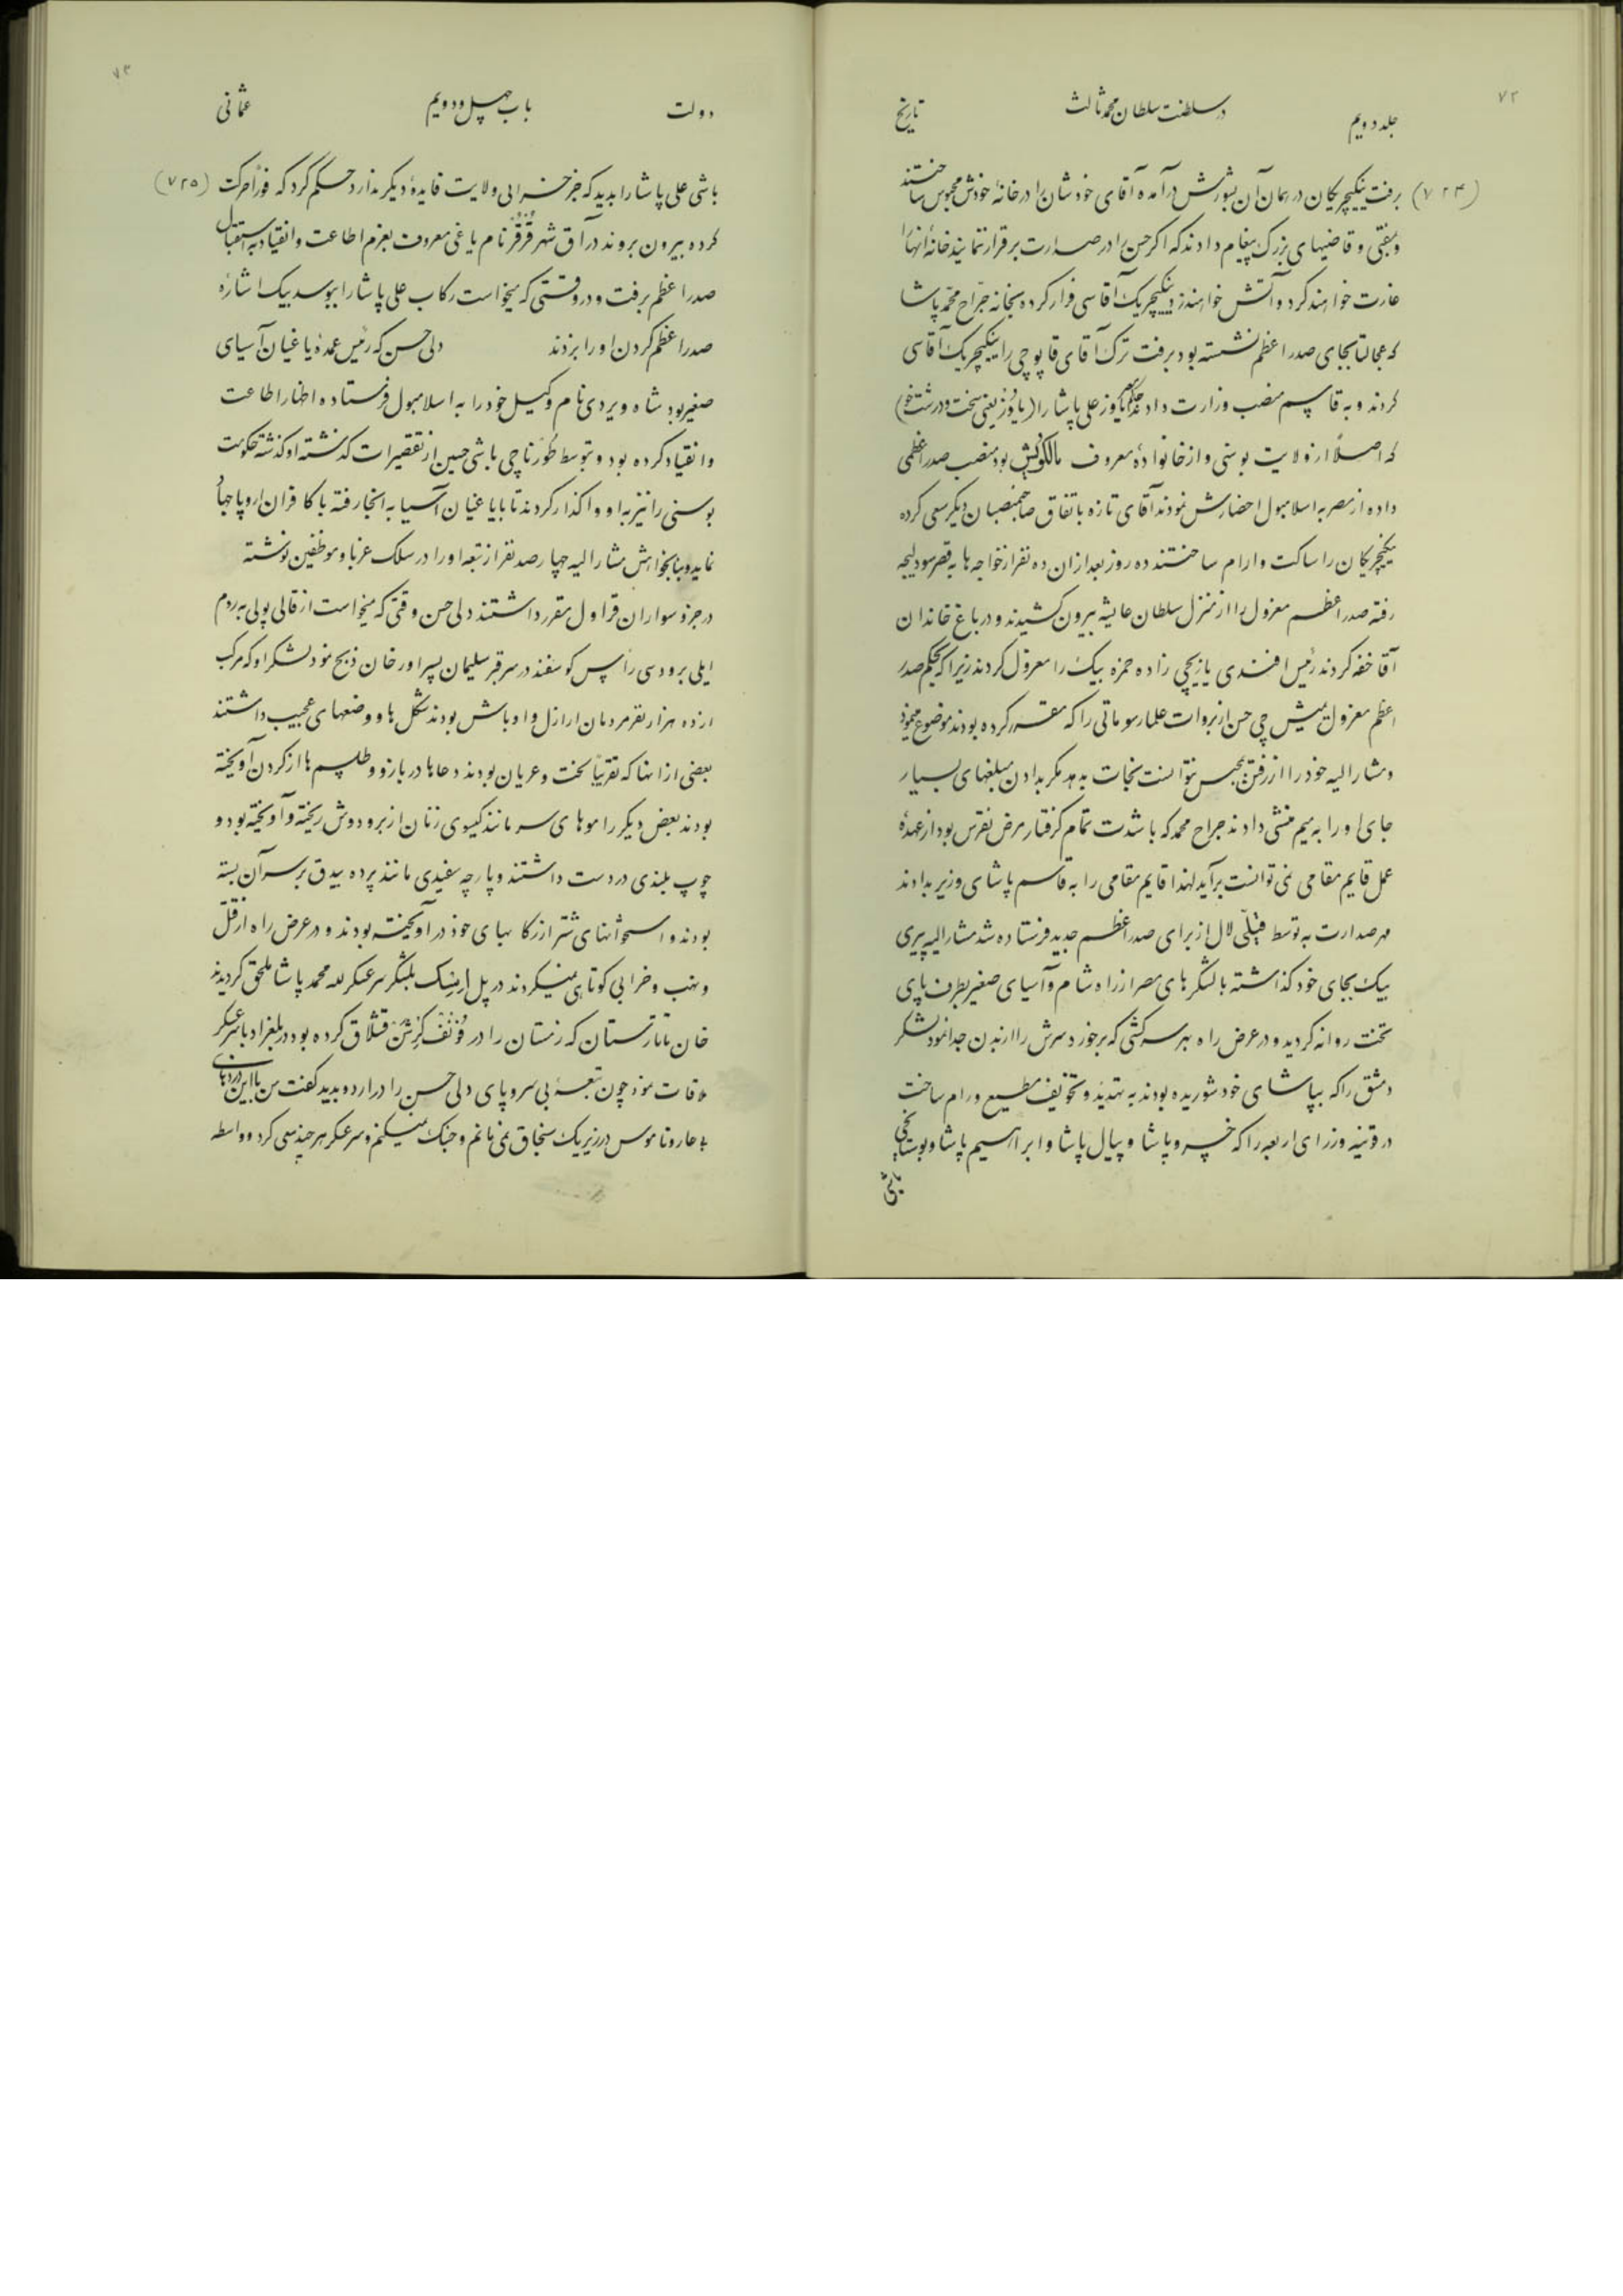 ۷۲
جلد دویم
در سلطنت سلطان محمد ثالث
تاریخ
(۷۲۴) برفت ینکیچریکان در همان آن بشورش درآمده آقای خودشان را در خانهٔ خودش محبوس ساختند
و بمفتی و قاضیهای بزرک پیغام دادند که اکر حسن را در صدارت برقرار نمایند خانهٔ انها را
غارت خواهند کرد و آتش خواهند زد ینکیچریک آقاسی فرار کرده بخانه جرّاح محمّد پاشا
که عجالتا بجای صدر اعظم نشسته بود برفت ترک آقای قاپوچی را ینکیچریک آقاسی
کردند و به قاسم منصب وزارت دادند یاوز علی پاشا را (یاوز یعنی سخت و درشت خو)
که اصلاً از ولایت بوسنی و از خانوادهٔ معروف مالکوویش بود منصب صدر اعظمی
داده از مصر به اسلامبول احضارش نمودند آقای تازه باتفاق صاحبمنصبان دیکر سعی کرده
ینکیچریکان را ساکت و ارام ساختند ده روز بعد ازان ده نفر از خواجه ها به قصر سودلیجه
رفته صدر اعظم معزول را از منزل سلطان عایشه بیرون کشیدند و در باغ خاندان
آقا خفه کردند رئیس افندی یازیچی زاده حمزه بیک را معزول کردند زیرا که بحکم صدر
اعظم معزول یمیش چی حسن از بروات علما رسوماتی را که مقرر کرده بودند موضوع مینمود
و مشارالیه خود را از رفتن بحبس نتوانست نجات بدهد مکر بدادن مبلغهای بسیار
جای او را به میم منشی دادند جراح محمد که با شدت تمام کرفتار مرض نقرس بود از عهدهٔ
عمل قایم مقامی نمی توانست برآید لهذا قایم مقامی را به قاسم پاشای وزیر بدادند
مهر صدارت به توسط لال از برای صدر اعظم جدید فرستاده شد مشارالیه پیری
بیک بجای خود کذاشته با لشکرهای مصر از راه شام و آسیای صغیر بطرف پای
تخت روانه کردید و در عرض راه بهر سرکشی که برخورد سرش را از بدن جدا نمود لشکر
دمشق را که بپاشای خود شوریده بودند به تهدید و تخویف مطیع و رام ساخت
در قونیه وزرای اربعه را که خسرو پاشا و پیال پاشا و ابراهیم پاشا و بوستانجی
باشی
۷۳
دولت
باب چهل و دویم
عثمانی
باشی علی پاشا را بدید که جز خرابی ولایت فایدهٔ دیکر ندارد حکم کرد که فوراً حرکت (۷۲۵)
کرده بیرون بروند در آق شهر نام یاغی معروف بعزم اطاعت و انقیاد به استقبال
صدر اعظم برفت و در وقتی که میخواست رکاب علی پاشا را ببوسد بیک اشارهٔ
صدر اعظم کردن او را بزدند دلی حسن که رئیس عمدهٔ یاغیان آسیای
صغیر بود شاه ویردی نام وکیل خود را به اسلامبول فرستاده اظهار اطاعت
و انقیاد کرده بود و بتوسط طورناچی باشی حسین از تقصیرات کذشته او کذشته حکومت
بوسنی را نیز به او واکذار کردند تا با یاغیان آسیا به انجا رفته با کافران اروپا جهاد
نماید و بنا بخواهش مشارالیه چهار صد نفر از تبعه او را در سلک غربا و موظفین نوشته
در جزو سواران قراول مقرر داشتند دلی حسن وقتی که میخواست از قالی پولی به روم
ایلی برود سی رأس کوسفند در سر قبر سلیمان پسر اورخان ذبح نمود لشکر او که مرکب
از ده هزار نفر مردمان اراذل و اوباش بودند شکل ها و وضعهای عجیب داشتند
بعضی از انها که تقریباً لخت و عریان بودند دعاها در بازو و طلسم ها از کردن آویخته
بودند بعض دیکر را موهای سر مانند کیسوی زنان از بر و دوش ریخته و آویخته بود و
چوب بلندی در دست داشتند و پارچه سفیدی مانند پرده بیدق بر سر آن بسته
بودند و استخوانهای شتر از رکابهای خود در آویخته بودند و در عرض راه از قتل
و نهب و خرابی کوتاهی نمیکردند در پل بلشکر سرعسکر لله محمد پاشا ملحق کردیدند
خان تاتارستان که زمستان را در قشلاق کرده بود در بلغراد با سرعسکر
ملاقات نمود چون تبعهٔ بی سر و پای دلی حسن را در اردو بدید کفت من با این دزدهای
بی عار و ناموس در زیر یک سنجاق نمی مانم و جنک نمیکنم و سرعسکر هر چند سعی کرد و واسطه